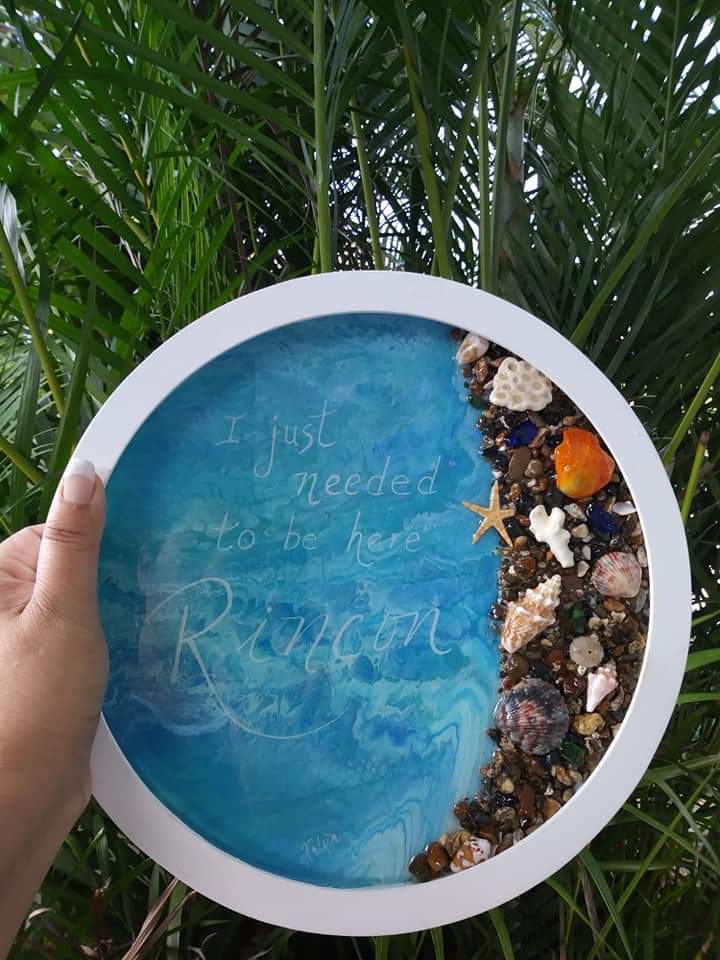 I just
needed
to be here
Rincon